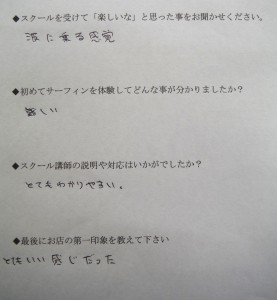 ◆スクールを受けて「楽しいな」と思った事をお聞かせください。
波に乗る感覚
◆初めてサーフィンを体験してどんな事が分かりましたか？
難しい
◆スクール講師の説明や対応はいかがでしたか？
とてもわかりやすい。
◆最後にお店の第一印象を教えて下さい
とてもいい感じだった